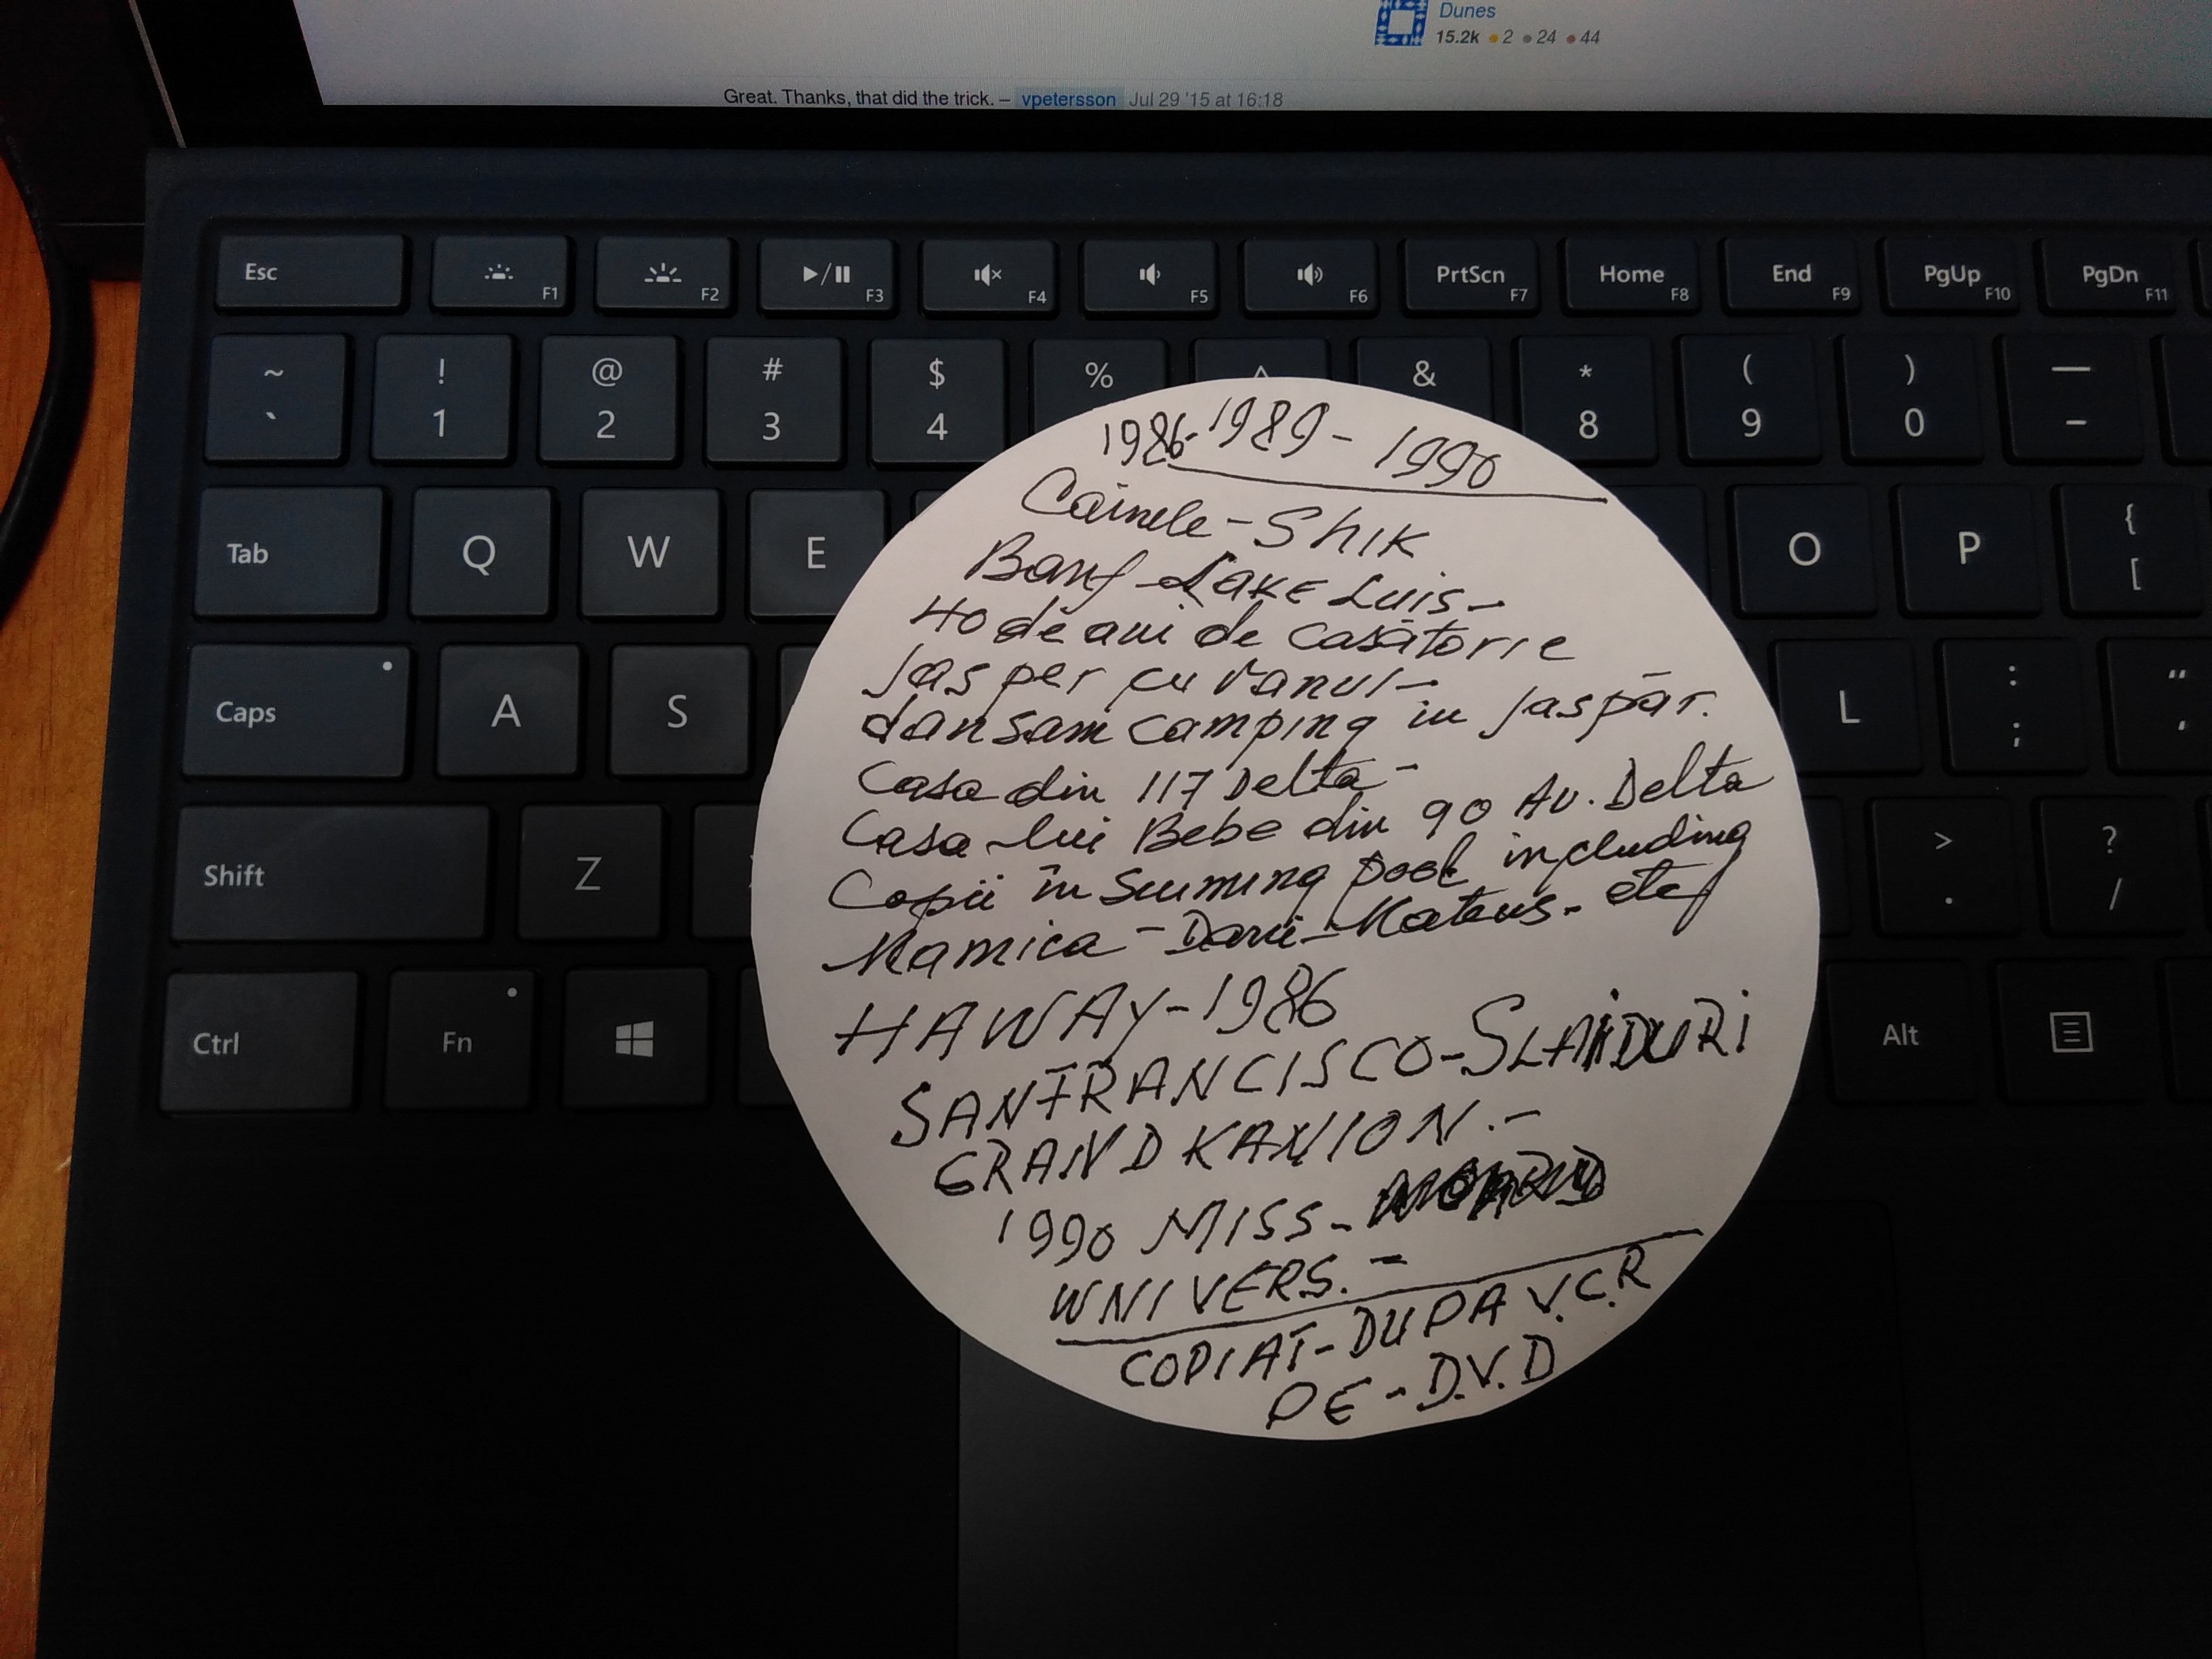 Dunes
15.2k 2 24 44
Great. Thanks, that did the trick. – vpetersson Jul 29 '15 at 16:18
Esc F1 F2 F3 F4 F5 F6 PrtScn F7 Home F8 End F9 PgUp F10 PgDn F11
~ ! @ # $ % ^ & * ( ) —
` 1 2 3 4 8 9 0 -
Tab Q W E O P { [
Caps A S L : ; " '
Shift Z > . ? /
Ctrl Fn Alt
1986-1989-1990
Cainele-Shik
Banf-LAKE Luis-
40 de ani de casătorie
Jasper cu vanul-
dansam camping in Jaspăr.
Casa din 117 Delta-
Casa lui Bebe din 90 Av. Delta
Copii în Suuming pool including
Mamica - - Mateus- etc
HAWAY-1986
SANFRANCISCO-SLAIDURI
GRAND KANION.-
1990 MISS-
WNIVERS.-
COPIAT-DUPA V.C.R
PE-D.V.D